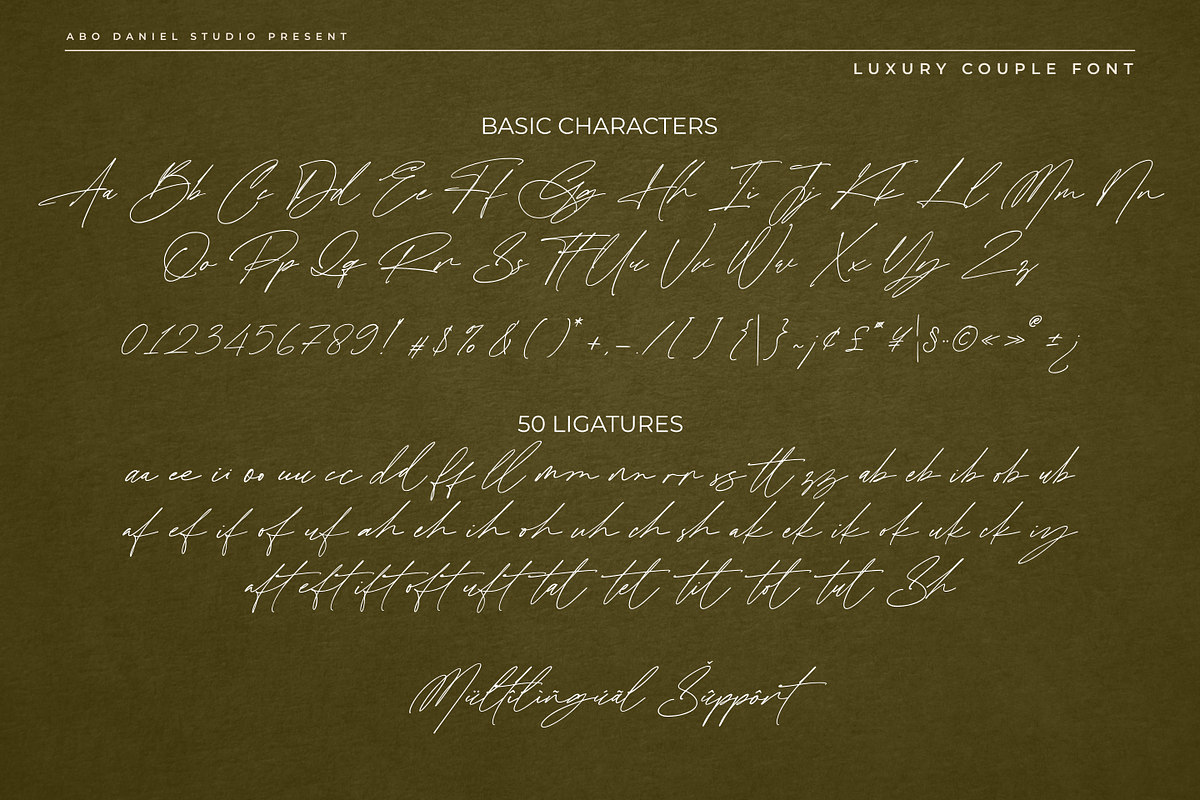 ABO DANIEL STUDIO PRESENT
LUXURY COUPLE FONT
BASIC CHARACTERS
Aa Bb Cc Dd Ee Ff Gg Hh Ii Jj Kk Ll Mm Nn
Oo Pp Qq Rr Ss Tt Uu Vv Ww Xx Yy Zz
0123456789! #$%&()*+,-./[]{|}~¡¢£¤¥¦§¨©«»®±¿
50 LIGATURES
aa ee ii oo uu cc dd ff ll mm nn rr ss tt zz ab eb ib ob ub
af ef if of uf ah eh ih oh uh ch sh ak ek ik ok uk ck iy
aft eft ift oft uft tat tet tit tot tut Sh
Mültîlìñgúãl Šûppôrt